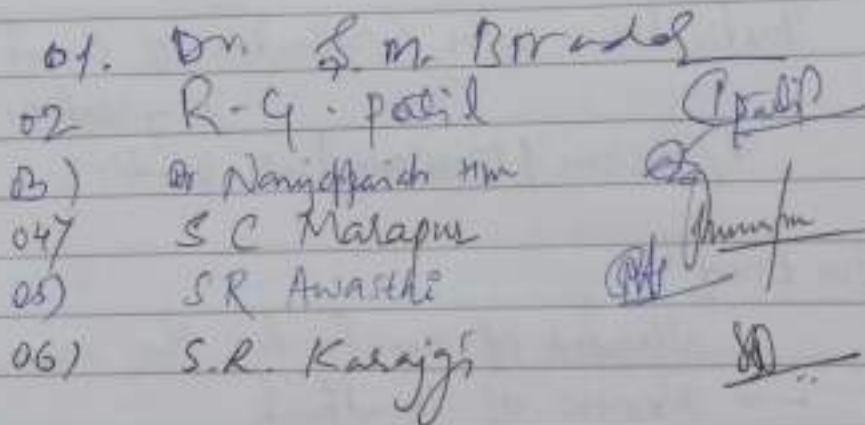 01. Dr S. M. Biradar
02 R. G. Patil
03) Dr Nanjappaiah HM
04) S C Malapur
05) SR Awasthi
06) S.R. Karajgi